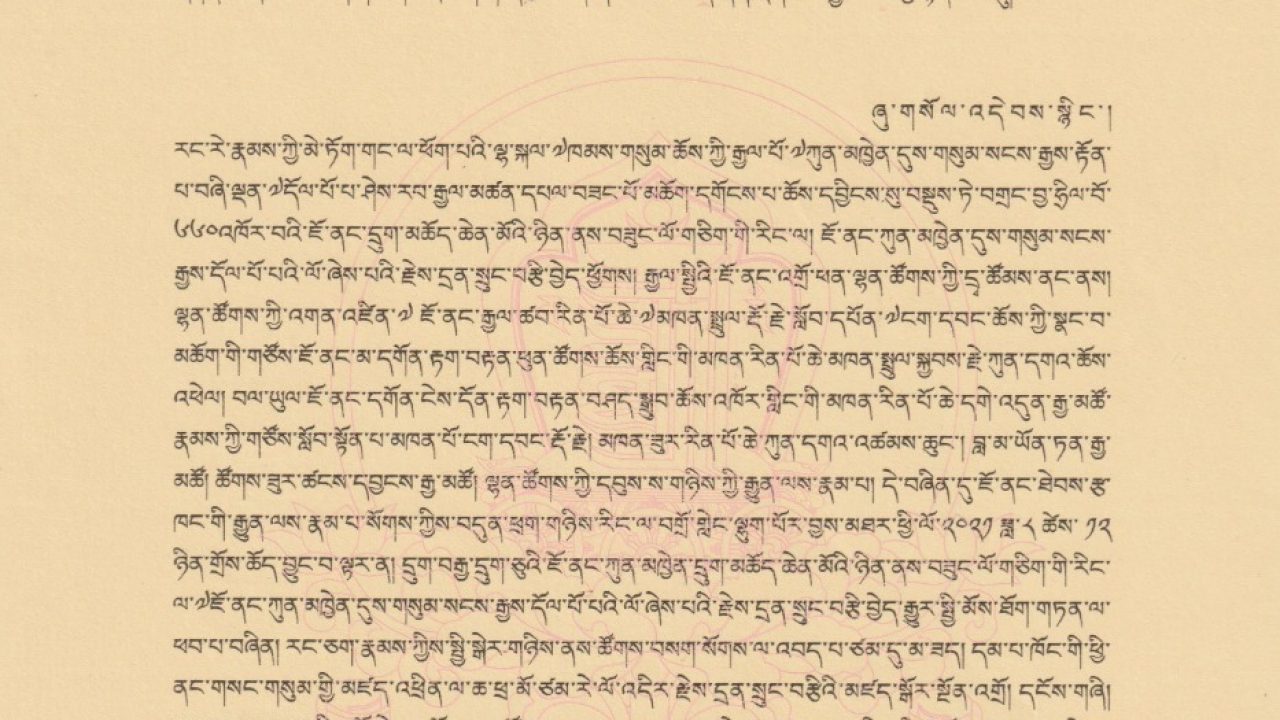 ཞུ་གསོལ་འདེབས་སྙིང་།
རང་རེ་རྣམས་ཀྱི་མེ་ཏོག་གང་ལ་ཕོག་པའི་ལྷ་སྐལ་༧ཁམས་གསུམ་ཆོས་ཀྱི་རྒྱལ་པོ་༧ཀུན་མཁྱེན་དུས་གསུམ་སངས་རྒྱས་རྟོན་
པ་བཞི་ལྡན་༧དོལ་པོ་པ་ཤེས་རབ་རྒྱལ་མཚན་དཔལ་བཟང་པོ་མཆོག་དགོངས་པ་ཆོས་དབྱིངས་སུ་བསྡུས་ཏེ་བགྲང་བྱ་ཧྲིལ་པོ་
༦༦༠འཁོར་བའི་ཇོ་ནང་དྲུག་མཆོད་ཆེན་མོའི་ཉིན་ནས་བཟུང་ལོ་གཅིག་གི་རིང་ལ། ཇོ་ནང་ཀུན་མཁྱེན་དུས་གསུམ་སངས་
རྒྱས་དོལ་པོ་པའི་ལོ་ཞེས་པའི་རྗེས་དྲན་སྲུང་བརྩི་བྱེད་ཕྱོགས། རྒྱལ་སྤྱིའི་ཇོ་ནང་འགྲོ་ཕན་ལྷན་ཚོགས་ཀྱི་དྲྭ་ཚོམས་ནང་ནས།
ལྷན་ཚོགས་ཀྱི་འགན་འཛིན་༧ ཇོ་ནང་རྒྱལ་ཚབ་རིན་པོ་ཆེ་༧མཁན་སྤྲུལ་རྡོ་རྗེ་སློབ་དཔོན་༧ངག་དབང་ཆོས་ཀྱི་སྣང་བ་
མཆོག་གི་གཙོས་ཇོ་ནང་མ་དགོན་རྟག་བརྟན་ཕུན་ཚོགས་ཆོས་གླིང་གི་མཁན་རིན་པོ་ཆེ་མཁན་སྤྲུལ་སྐྱབས་རྗེ་ཀུན་དགའ་ཆོས་
འཕེལ། བལ་ཡུལ་ཇོ་ནང་དགོན་ངེས་དོན་རྟག་བརྟན་བཤད་སྒྲུབ་ཆོས་འཁོར་གླིང་གི་མཁན་རིན་པོ་ཆེ་དགེ་འདུན་རྒྱ་མཚོ་
རྣམས་ཀྱི་གཙོས་སློབ་སྟོན་པ་མཁན་པོ་ངག་དབང་རྡོ་རྗེ། མཁན་ཟུར་རིན་པོ་ཆེ་ཀུན་དགའ་འཚམས་ཆུང་། བླ་མ་ཡོན་ཏན་རྒྱ་
མཚོ། ཚོགས་ཟུར་ཚངས་དབྱངས་རྒྱ་མཚོ། ལྷན་ཚོགས་ཀྱི་དབུས་ས་གཉིས་ཀྱི་རྒྱུན་ལས་རྣམ་པ། དེ་བཞིན་དུ་ཇོ་ནང་ཐེབས་རྩ་
ཁང་གི་རྒྱུན་ལས་རྣམ་པ་སོགས་ཀྱིས་བདུན་ཕྲག་གཉིས་རིང་ལ་བགྲོ་གླེང་ལྷུག་པོར་བྱས་མཐར་ཕྱི་ལོ་༢༠༢༡ ཟླ་ ༨ ཚེས་ ༡༢
ཉིན་གྲོས་ཆོད་བྱུང་བ་ལྟར་ན། དྲུག་བརྒྱ་དྲུག་ཅུའི་ཇོ་ནང་ཀུན་མཁྱེན་དྲུག་མཆོད་ཆེན་མོའི་ཉིན་ནས་བཟུང་ལོ་གཅིག་གི་རིང་
ལ་༧ཇོ་ནང་ཀུན་མཁྱེན་དུས་གསུམ་སངས་རྒྱས་དོལ་པོ་པའི་ལོ་ཞེས་པའི་རྗེས་དྲན་སྲུང་བརྩི་བྱེད་རྒྱུར་སྤྱི་མོས་ཐོག་གཏན་ལ་
ཕབ་པ་བཞིན། རང་ཅག་རྣམས་ཀྱིས་སྤྱི་སྒེར་གཉིས་ནས་ཚོགས་བསག་སོགས་ལ་འབད་པ་ཙམ་དུ་མ་ཟད། དམ་པ་ཁོང་གི་ཕྱི་
ནང་གསང་གསུམ་གྱི་མཛད་འཕྲིན་ལ་ཆ་ཕྲ་མོ་ཙམ་རེ་ལོ་འདིར་རྗེས་དྲན་སྲུང་བརྩིའི་མཛད་སྒོར་སྔོན་འགྲོ། དངོས་གཞི།